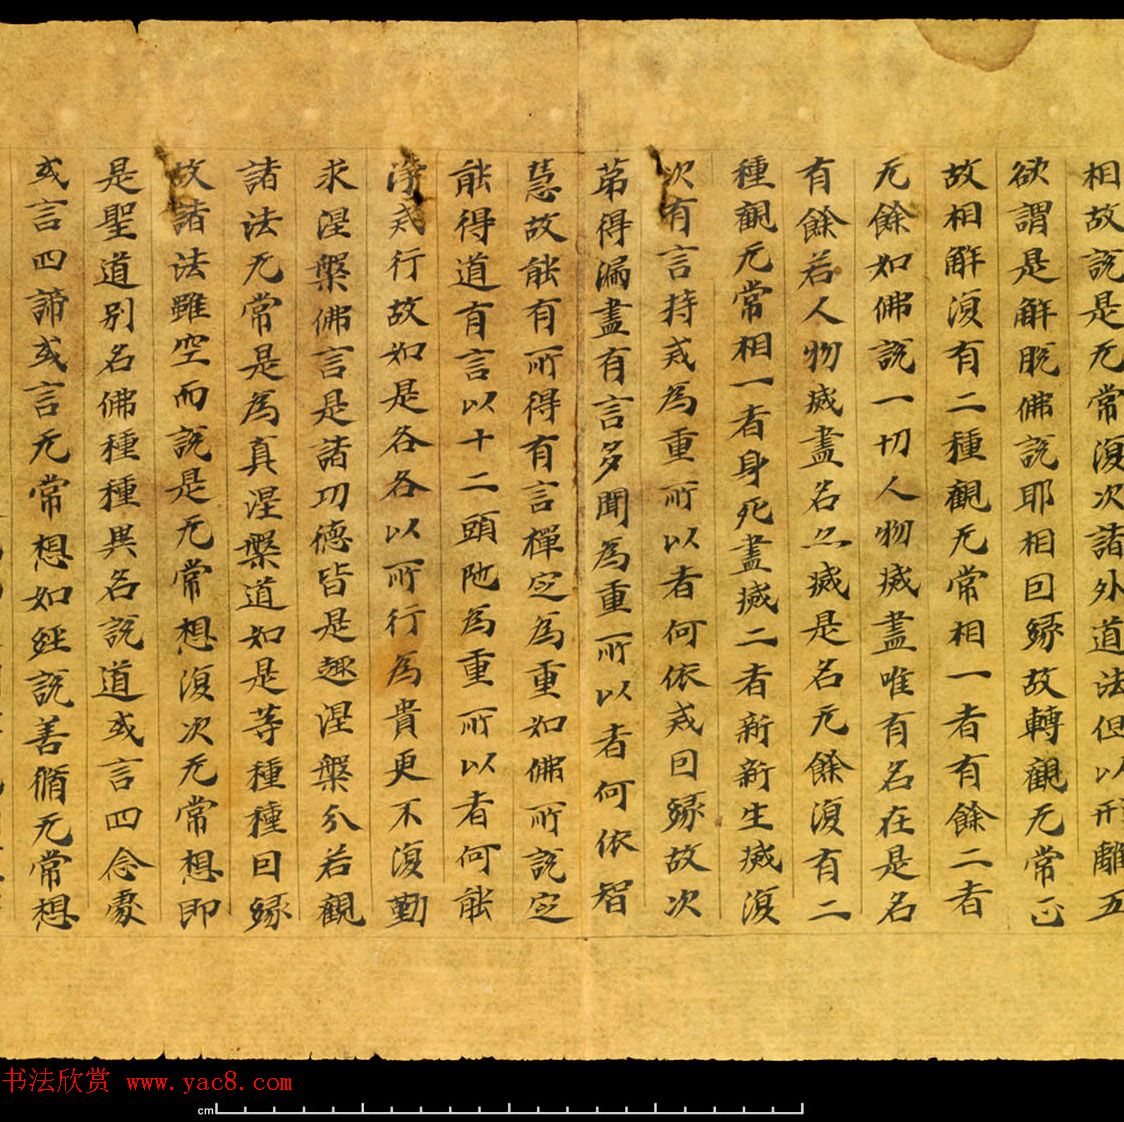 相故說是无常復次諸外道法但以形離五
欲謂是解脫佛說耶相回縁故轉觀无常正
故相解復有二種觀无常相一者有餘二者
无餘如佛說一切人物滅盡唯有名在是名
有餘若人物滅盡名亦滅是名无餘復有二
種觀无常相一者身死盡滅二者新新生滅復
次有言持戒為重所以者何依戒回縁故次
苐得漏盡有言多聞為重所以者何依智
慧故能有所得有言禪定為重如佛所說定
能得道有言以十二頭陁為重所以者何能
淨戒行故如是各各以所行為貴更不復勤
求涅槃佛言是諸功德皆是趣涅槃分若觀
諸法无常是為真涅槃道如是等種種回縁
故諸法雖空而說是无常想復次无常想即
是聖道別名佛種種異名說道或言四念處
或言四諦或言无常想如經說善脩无常想
书法欣赏 www.yac8.com
cm